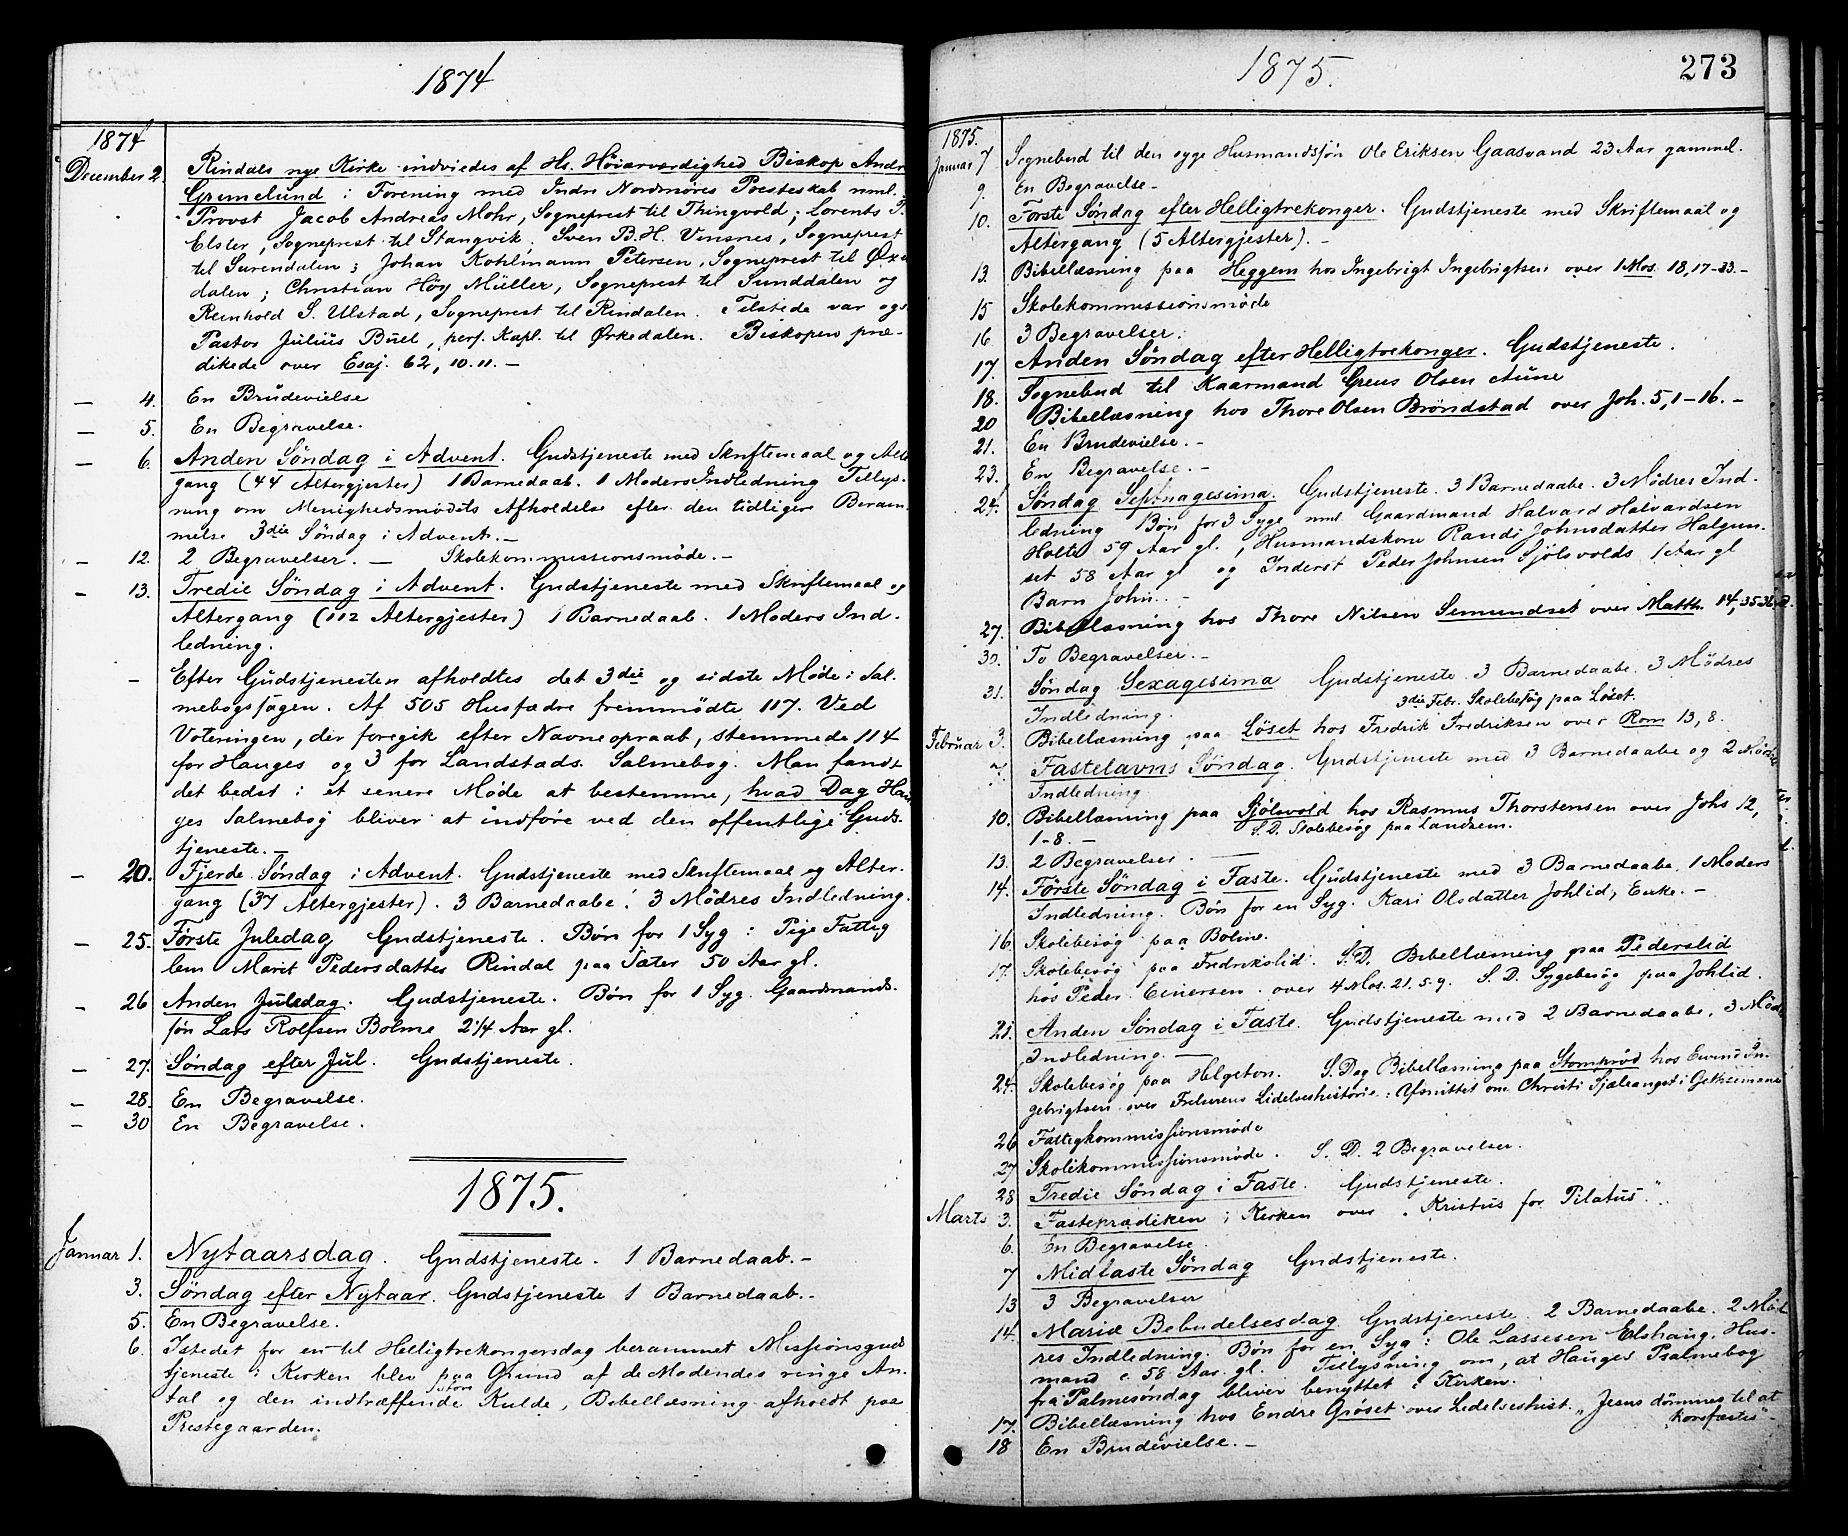 1874
1874
December 2. Rindals nye Kirke indvies af Hs. Høiærværdighed Biskop Andr.
Grimelund i Forening med Indre Nordmøres Presteskab nml.
Provst Jacob Andreas Mohr, Sogneprest til Thingvold; Lorents
Elster, Sogneprest til Stangvik, Sven B. H. Vinsnes, Sogneprest
til Surendalen; Johan Kohlmann Petersen, Sogneprest til Øxen-
dalen; Christian Höy Müller, Sogneprest til Sunddalen og
Reinhold S. Ulstad, Sogneprest til Rindalen. Tilstede var ogs
Pastor Julius Buel, pers. Kapl. til Ørkedalen. Biskopen præ-
dikede over Esaj. 62, 10. 11. —
— 4. En Brudevielse
— 5. En Begravelse.
— 6. Anden Søndag i Advent. Gudstjeneste med Skriftemaal og Alter
gang (44 Altergjester) 1 Barnedaab. 1 Moders Indledning Tillys-
ning om Menighedsmødets Afholdelse efter den tidligere Beram-
melse 3die Søndag i Advent. —
— 12. 2 Begravelser. — Skolekommissionsmøde. —
— 13. Tredie Søndag i Advent. Gudstjeneste med Skriftemaal og
Altergang (112 Altergjester) 1 Barnedaab. 1 Moders Ind-
ledning.
— Efter Gudstjenesten afholdtes det 3die og sidste Møde i Sal-
mebogssagen. Af 505 Husfædre fremmødte 117. Ved
Voteringen, der foregik efter Navneopraab, stemmede 114
for Hauges og 3 for Landstads Salmebog. Man fandt
det bedst i et senere Møde at bestemme, hvad Dag Hau
ges Salmebog bliver at indføre ved den offentlige Guds-
tjeneste. —
— 20. Fjerde Søndag i Advent. Gudstjeneste med Skriftemaal og Alter-
gang (37 Altergjester). 3 Barnedaabe. 3 Mødres Indledning.
— 25. Første Juledag Gudstjeneste. Bøn for 1 Syg: Pige Fattig
lem Marit Pedersdatter Rindal paa Sæter 50 Aar gl.
— 26 Anden Juledag. Gudstjeneste. Bøn for 1 Syg. Gaardmands-
søn Lars Rolfsen Bolme 2 1/4 Aar gl.
— 27. Søndag efter Jul. Gudstjeneste.
— 28. En Begravelse.
— 30 En Begravelse.
1875.
Januar 1. Nytaarsdag. Gudstjeneste. 1 Barnedaab. —
3. Søndag efter Nytaar. Gudstjeneste 1 Barnedaab. —
5. En Begravelse.
6. Istedet for en til Helligtrekongersdag berammet Missionsguds
tjeneste i Kirken blev paa Grund af de Mødendes ringe An-
tal og den indtræffende store Kulde, Bibellæsning afholdt paa
Prestegaarden.
1875.
273
1875.
Januar 7 Sognebud til den syge Husmandssøn Ole Eriksen Gaasvand 23 Aar gammel.
9. En Begravelse —
10. Første Søndag efter Helligtrekonger. Gudstjeneste med Skriftemaal og
Altergang (5 Altergjester). —
13 Bibellæsning paa Heggem hos Ingebrigt Ingebrigtsen over 1 Mos. 18, 17-33. —
15 Skolekommissionsmøde
16 3 Begravelser.
17. Anden Søndag efter Helligtrekonger. Gudstjeneste.
18. Sognebud til Kaarmand Greus Olsen Aune
20 Bibellæsning hos Thore Olsen Brøndstad over Joh. 5, 1-16. —
21. En Brudevielse. —
23. En Begravelse. —
24. Søndag Septuagesima. Gudstjeneste. 3 Barnedaabe. 3 Mødres Ind-
ledning Bøn for 3 Syge nml. Gaardmand Halvard Halvardsen
Holte 59 Aar gl., Husmandskone Randi Johnsdatter Halgun-
set 58 Aar gl og Inderst Peder Johnsen Sjølsvolds 1 Aar gl
Barn John. —
27. Bibellæsning hos Thore Nilsen Semundset over Matth. 14, 35-36
30. To Begravelser. —
31. Søndag Sexagesima Gudstjeneste 3 Barnedaabe. 3 Mødres
Indledning. 3die Febr. Skolebesøg paa Løset.
Februar 3. Bibellæsning paa Løset hos Fredrik Fredriksen over Rom 13, 8.
7. Fastelavns Søndag. Gudstjeneste med 3 Barnedaabe og 2 Mødres
Indledning
10. Bibellæsning paa Sjølsvold hos Rasmus Thorstensen over Johs 12,
1-8. — S. D. Skolebesøg paa Landsem.
13. 2 Begravelser. —
14. Første Søndag i Faste. Gudstjeneste med 3 Barnedaabe. 1 Moders
Indledning. Bøn for en Syg: Kari Olsdatter Johlid, Enke. —
16 Skolebesøg paa Bolme.
17. Skolebesøg paa Fredrikslid. S. D. Bibellæsning paa Pederslid
hos Peder Einersen over 4 Mos. 21. 5-9. S. D. Sygebesøg paa Johlid.
21. Anden Søndag i Faste. Gudstjeneste med 2 Barnedaabe, 3 Mødr
Indledning. —
24. Skolebesøg paa Helgeton. S. Dag Bibellæsning paa Stomprød hos Evind In-
gebrigtsen over Frelserens Lidelseshistorie: Afsnittet om Christi Sjæleangst i Gethsemane
26 Fattigkommissionsmøde
27 Skolekommissionsmøde. S. D. 2 Begravelser.
28 Tredie Søndag i Faste. Gudstjeneste.
Marts 3. Fasteprædiken i Kirken over „Kristus for Pilatus".
6. En Begravelse.
7 Midfaste Søndag Gudstjeneste.
13 3 Begravelser
14. Mariæ Bebudelsesdag Gudstjeneste 2 Barnedaabe. 2 Mød-
res Indledning. Bøn for en Syg: Ole Lassesen Elshaug. Hus-
mand c. 58 Aar gl. Tillysning om, at Hauges Psalmebog
fra Palmesøndag bliver benyttet i Kirken.
17. Bibellæsning hos Endre Grøset over Lidelseshist. „Jesus dømmes til at
korsfæstes" —
18 En Brudevielse. —